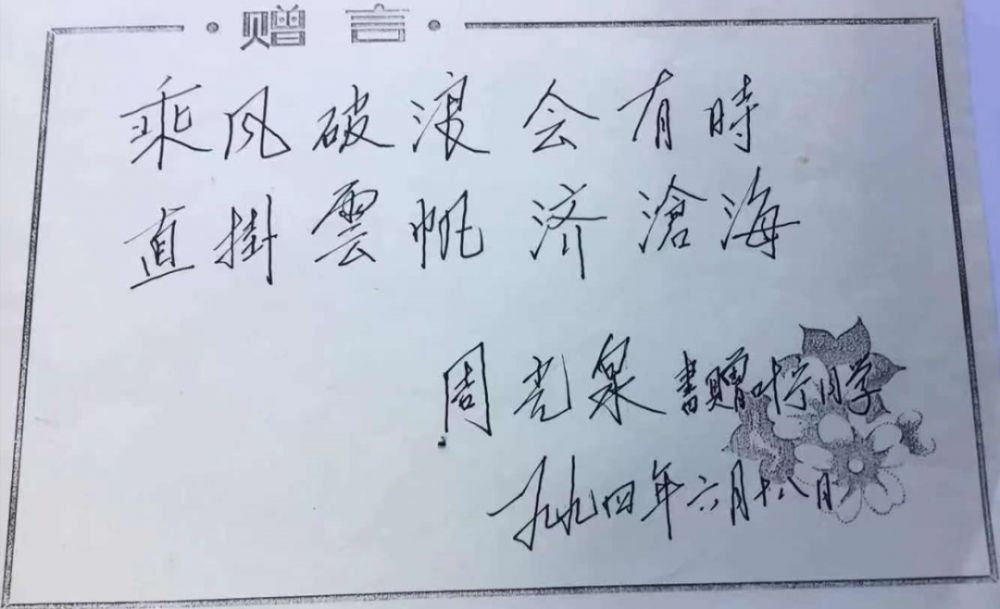 赠言
乘风破浪会有時
直掛雲帆济滄海
周光泉 書赠叶宁同学
一九九四年六月十八日